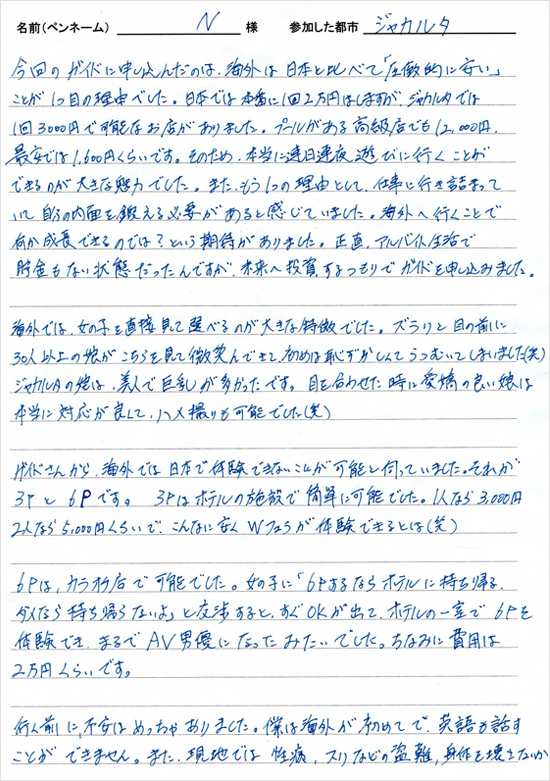 名前（ペンネーム） N 様 参加した都市 ジャカルタ
今回のガイドに申し込んだのは、海外は日本と比べて「圧倒的に安い」
ことが1つ目の理由でした。日本では本番に1回2万円はしますが、ジャカルタでは
1回3000円で可能なお店がありました。プールがある高級店でも12,000円、
最安では1,600円くらいです。そのため、本当に連日連夜遊びに行くことが
できるのが大きな魅力でした。また、もう1つの理由として、仕事に行き詰まって
いて自分の内面を鍛える必要があると感じていました。海外へ行くことで
何か成長できるのでは？という期待がありました。正直、アルバイト生活で
貯金もない状態だったんですが、未来へ投資するつもりでガイドを申し込みました。
海外では、女の子を直接見て選べるのが大きな特徴でした。ズラリと目の前に
30人以上の娘がこちらを見て微笑んできて、初めは恥ずかしくてうつむいてしまいました(笑)
ジャカルタの娘は、美人で巨乳が多かったです。目を合わせた時に愛嬌の良い娘は
本当に対応が良くて、ハメ撮りも可能でした(笑)
ガイドさんから、海外では日本で体験できないことが可能と伺っていました。それが
3Pと6Pです。3Pはホテルの施設で簡単に可能でした。1人なら3,000円
2人なら5,000円くらいで、こんなに安くWフェラが体験できるとは(笑)
6Pは、カラオケ店で可能でした。女の子に「6Pするならホテルに持ち帰る、
ダメなら持ち帰らないよ」と交渉すると、すぐOKが出て、ホテルの一室で6Pを
体験でき、まるでAV男優になったみたいでした。ちなみに費用は
2万円くらいです。
行く前に、不安はめっちゃありました。僕は海外が初めてで、英語も話す
ことができません。また、現地では性病、スリなどの盗難、身体を壊さないか